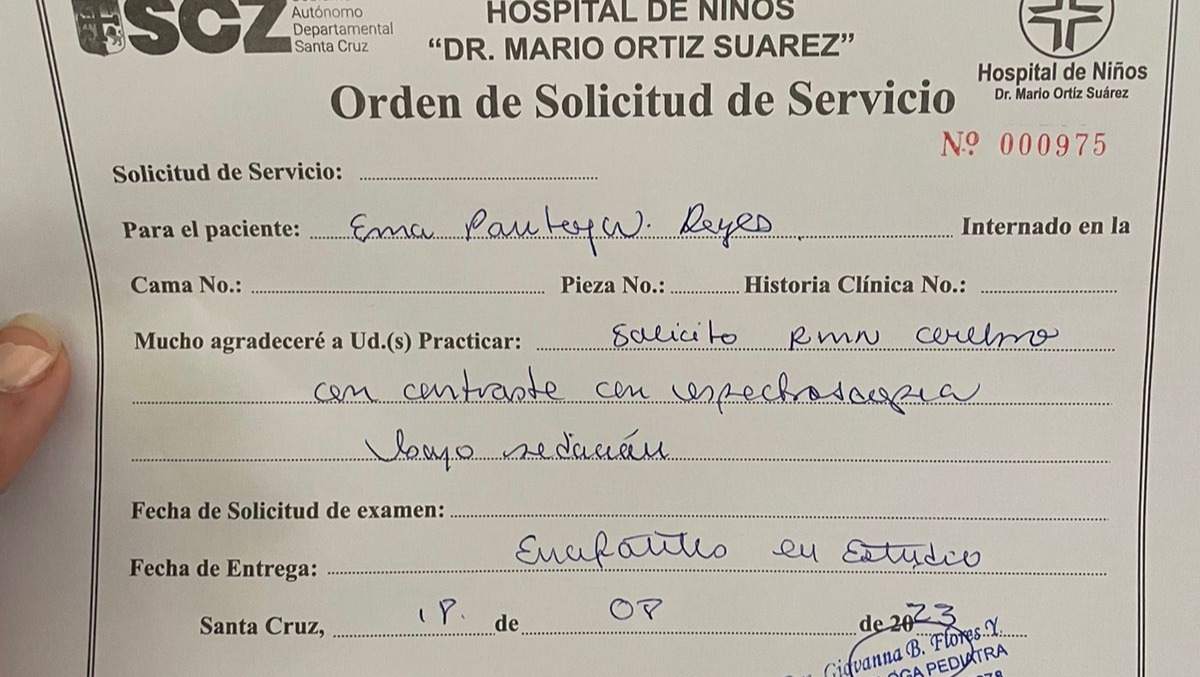 SCZ
Autónomo
Departamental
Santa Cruz
HOSPITAL DE NIÑOS
“DR. MARIO ORTIZ SUAREZ”
Hospital de Niños
Dr. Mario Ortíz Suárez
Orden de Solicitud de Servicio
Nº 000975
Solicitud de Servicio:
Para el paciente: Ema Reyes Internado en la
Cama No.: Pieza No.: Historia Clínica No.:
Mucho agradeceré a Ud.(s) Practicar: Solicito RMN cerebro
con contraste con espectroscopia
bajo sedación
Fecha de Solicitud de examen:
Fecha de Entrega: en Estudio
Santa Cruz, de 08 de 2023
Giovanna B. Flores Y.
PEDIATRA